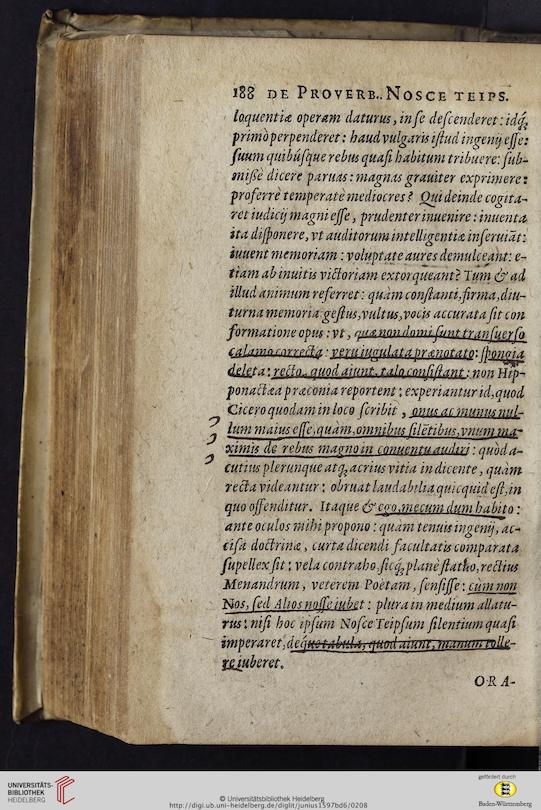 188 DE PROVERB.. NOSCE TEIPS.
loquentiæ operam daturus, in se descenderet: idq́,
primò perpenderet: haud vulgaris istud ingenij esse:
suum quibúsque rebus quasi habitum tribuere: sub-
missè dicere paruas: magnas grauiter exprimere:
proferrè temperatè mediocres? Qui deinde cogita-
ret iudicij magni esse, prudenter inuenire: inuenta
ita disponere, vt auditorum intelligentiæ inseruiāt:
iuuent memoriam: voluptate aures demulceant: e-
tiam ab inuitis victoriam extorqueant? Tum & ad
illud animum referret: quàm constanti, firma, diu-
turna memoria gestus, vultus, vocis accurata sit con
formatione opus: vt, quæ non domi sunt transuerso
calamo correcta: veru iugulata prænotato: spongia
deleta: recto, quod aiunt, talo consistant: non Hip-
ponactæa præconia reportent: experiantur id, quod
Cicero quodam in loco scribit, onus ac munus nul-
lum maius esse, quàm, omnibus silētibus, vnum ma-
ximis de rebus magno in conuentu audiri: quòd a-
cutius plerunque atq́, acrius vitia in dicente, quàm
recta videantur: obruat laudabilia quicquid est, in
quo offenditur. Itaque & ego, mecum dum habito:
ante oculos mihi propono: quàm tenuis ingenij, ac-
cisa doctrinæ, curta dicendi facultatis comparata
supellex sit: vela contraho, sicq́, planè statuo, rectius
Menandrum, veterem Poëtam, sensisse: cùm non
Nos, sed Alios nosse iubet: plura in medium allatu-
rus: nisi hoc ipsum Nosce Teipsum silentium quasi
imperaret, déque tabula, quod aiunt, manum tolle-
re iuberet.
ORA-
UNIVERSITÄTS-
BIBLIOTHEK
HEIDELBERG
© Universitätsbibliothek Heidelberg
http://digi.ub.uni-heidelberg.de/diglit/junius1597bd6/0208
gefördert durch
Baden-Württemberg